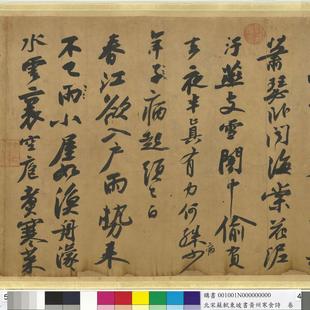 蕭瑟臥聞海棠花泥
汙燕支雪闇中偷負
去夜半真有力何殊少
病
年子病起頭已白
春江欲入戶雨勢來
不已雨小屋如漁舟濛
水雲裏空庖煮寒菜
001001N000000000
北宋蘇軾東坡書黃州寒食詩 卷